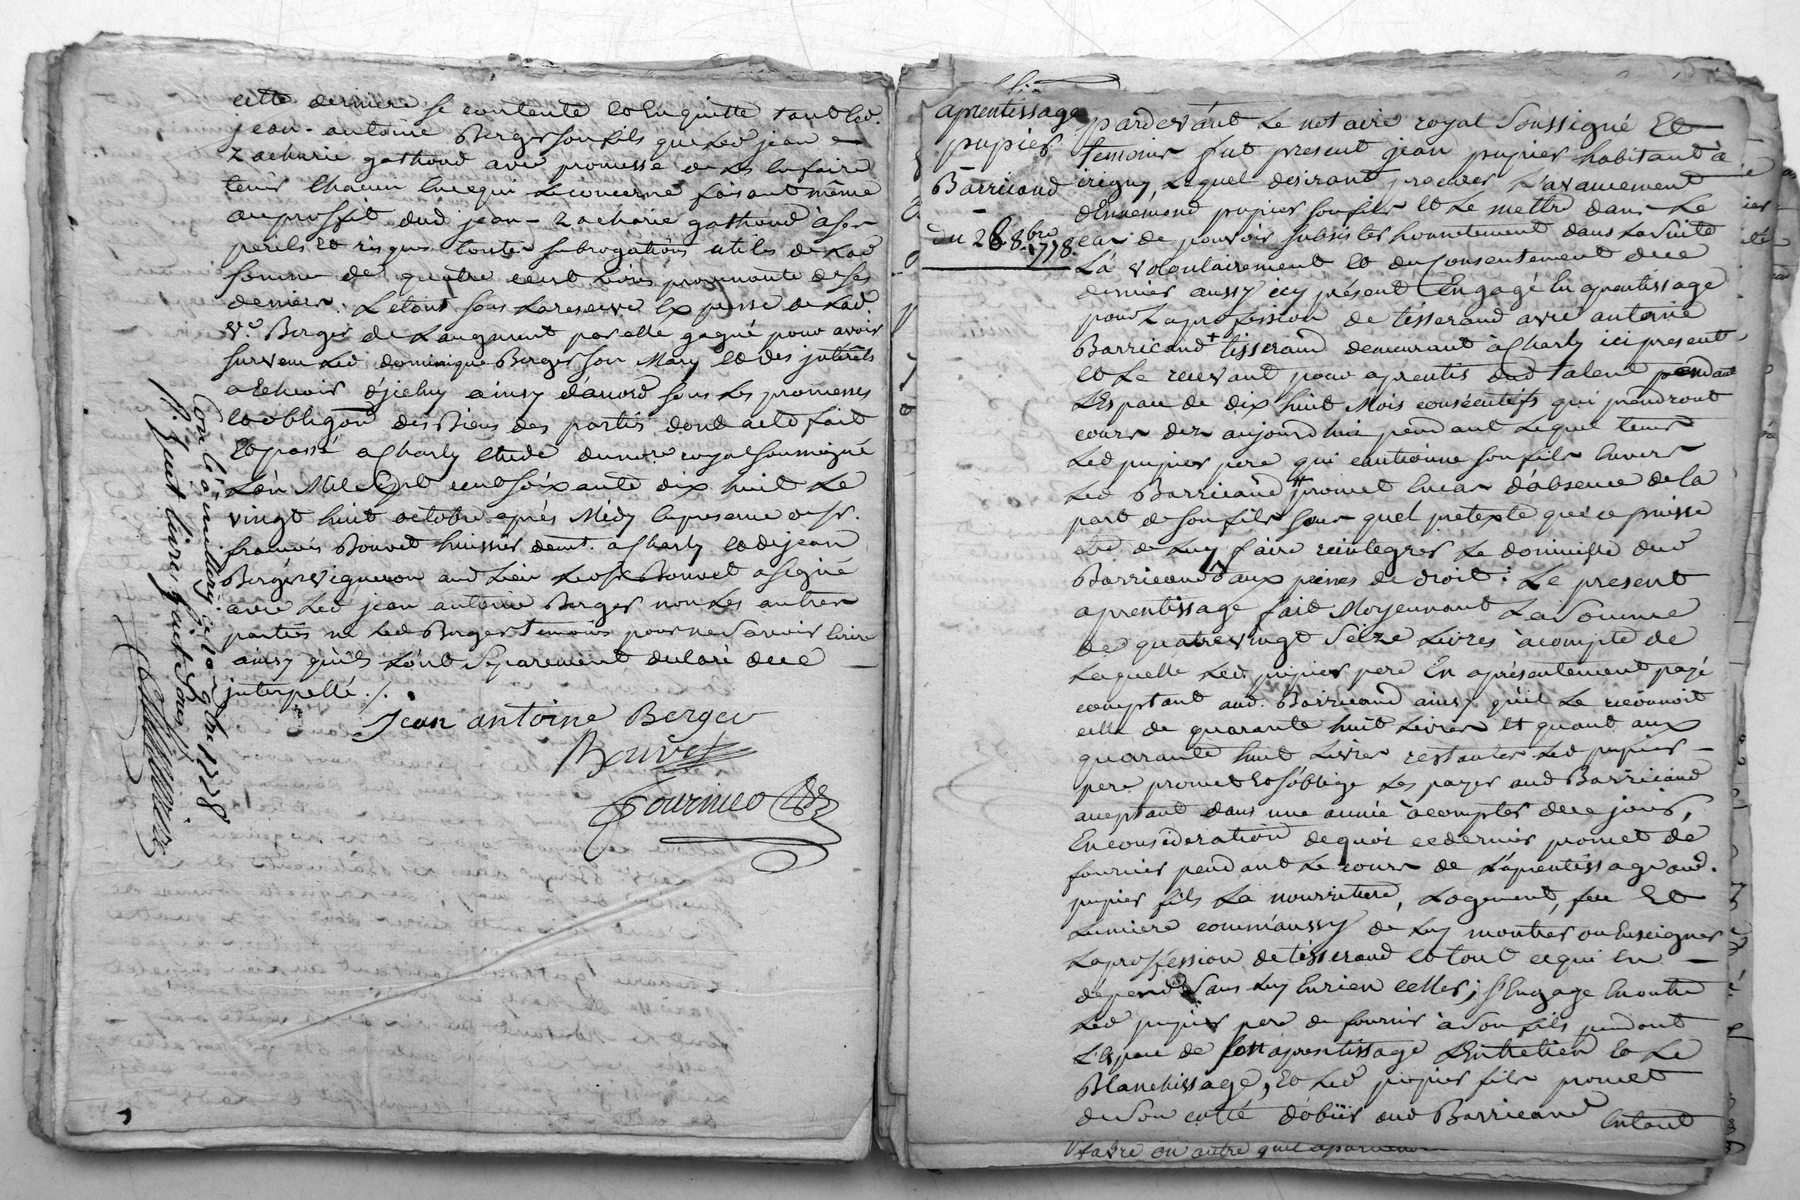 cette derniere se contente et en quitte tant led.
jean-antoine Berger son fils que led jean
Zacharie gathoud avec promesse de les en faire
tenir chacun en ce qui le concerne faisant même
au proffit dud jean-Zacharie gathoud à ses
perils et risques toutes subrogations utiles de lad
somme de quatre cent livres provenante de ses
deniers. Le tout sous la reserve expresse de lad
ve. Berger de l'augment par elle gagné pour avoir
survecu led dominique Berger son Mary et des intérêts
a echeoir d'icelui ainsy d'accord sous les promesses
et obligaons des Biens des partis dont acte fait
et passé a Charly etude du nore. royal soussigné
L'an Mil Sept cent soixante dix huit le
vingt huit octobre après Midy en presence de sr.
francois Bouvet huissier demt. a Charly et de jean
Berger vigneron aud lieu led sr Bouvet a signé
avec led jean antoine Berger non les autres
parties ni led Berger temoins pour ne savoir ecrire
ainsy qu'ils l'ont separement declaré de ce
interpellé ./.
jean antoine Berger
Bouvet
Con.lé a millery ce 10 9bre 1778
R. huit livres huit sous
aprentissage
pupier
Barricand
du 28 8bre
1778.
pardevant Le notaire royal Soussigné Et
temoins fut present jean pupier habitant à
irigny, Lequel desirant procurer L'avancement
d'Ennemond pupier son fils et Le mettre dans Le
cas de pouvoir subsister honnetement dans la suite
L'a volontairement et du consentement de ce
dernier aussy icy présent Engagé En aprentissage
pour La profession de tisserand avec antoine
Barricand + tisserand demeurant à Charly ici present
et Le recevant pour aprentis dud talent pendant
L'espace de dix huit Mois consécutifs qui prendront
cours dez aujourdhui pendant Lequel tems
Led pupier pere qui cautionne son fils Envers
Led Barricand promet En cas d'absence de la
part de son fils sous quel pretexte que ce puisse
etre de Luy faire reintegrer Le domicile dud
Barricand aux peines de droit: Le present
aprentissage fait Moyennant La Somme
de quatrevingt Seize Livres à compte de
Laquelle Led. pupier pere En a présentement payé
comptant aud. Barricand ainsy qu'il Le reconnoit
celle de quarante huit Livres Et quant aux
quarante huit Livres restantes Led pupier
pere promet Et s'oblige Les payer aud Barricand
aceptant dans une année à compter de ce jour,
En consideration de quoi ce dernier promet de
fournir pendant Le cours de L'aprentissage aud.
pupier fils La nourriture, Logement, feu Et
Lumiere comm'aussy de Luy montrer ou Enseigner
La profession de tisserand et tout ce qui en
depend Sans Luy En rien celler; s'Engage En outre
Led pupier pere de fournir à Son fils pendant
L'espace de son aprentissage L'Entretien et Le
Blanchissage, Et Led pupier fils promet
de Son coté d'obéir aud Barricand Entout